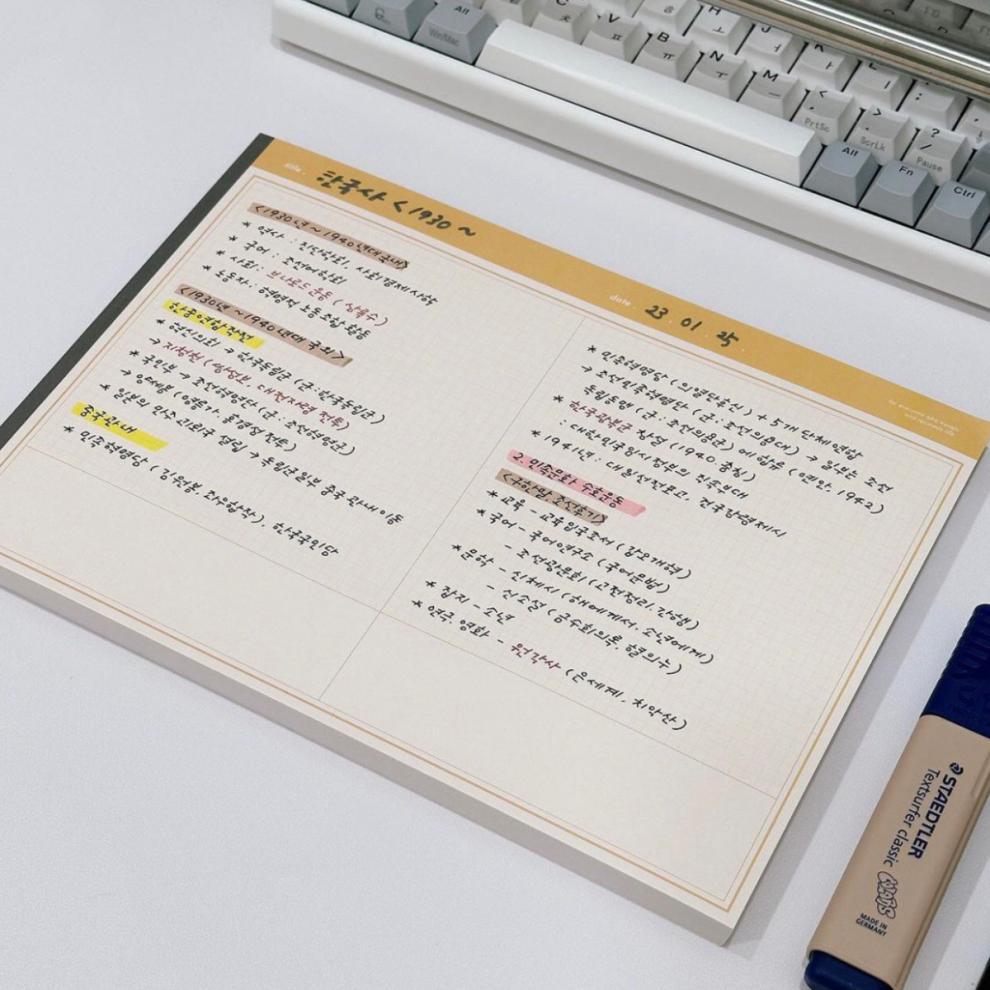 title.
한국사 < 1930 ~
date. 23. 01. 25.
<1930년 ~ 1940년대 국내>
* 역사 : 진단학회, 사회경제사학
* 국어 : 조선어학회
* 사회 : 브나로드 운동 (상록수)
* 노동자 : 혁명적 노동조합 활동
<1930년 ~ 1940년대 국외>
한중연합작전
* 혁신의회 → 한국독립군 (군:한국독립군)
→ 지청천 (쌍성보 대전자령 전투)
* 국민부 → 조선혁명당 (군:조선혁명군)
→ 양세봉 (영릉가 흥경성 전투)
* 일본의 만주 신뢰국 설립 → 독립군 일부 중국 관내 이동
중국관내
* 민족혁명당 (김원봉 조소앙 합작), 한국국민당
* 민족혁명당 (의열단 혁신) + 5개 단체 연합
→ 조선민족혁명당 (군:조선의용대) → 일부는 조선
독립동맹 (군:조선의용군)에 합류 (연안, 1942)
* 한국광복군 창설 (1940 충칭)
: 대한민국임시정부의 직속부대
* 1941년 : 대일선전포고, 건국강령제시
2. 민족문화 수호운동
<구한말, 조선후기>
* 교육 - 교육입국조서 (갑오개혁)
* 국어 - 국어연구소 (국어문법)
- 조선광문회 (고전정리, 간행)
* 문학 - 신체시 (해에게서 소년에게)
- 신소설 (금수회의록, 혈의누)
* 잡지 - 소년
* 연극, 영화 - 원각사 (은세계, 치악산)
Alt
Win/Mac
C ㅊ
V ㅍ
B ㅠ
N ㅜ
M ㅡ
H ㅗ
J ㅓ
K ㅏ
L ㅣ
< ,
PrtSc
> .
ScrLk
? /
Pause
Alt
Fn
Ctrl
STAEDTLER
Textsurfer classic
MADE IN
GERMANY